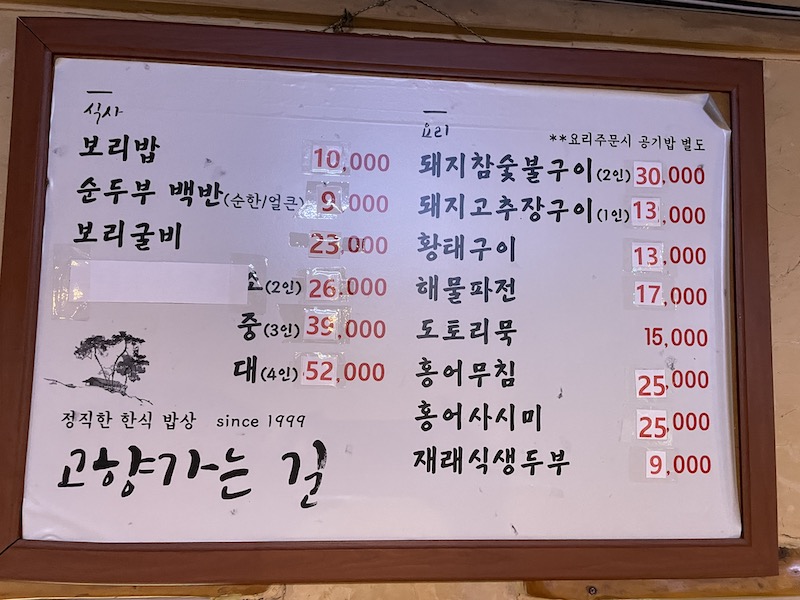 식사
보리밥 10,000
순두부 백반(순한/얼큰) 9,000
보리굴비 23,000
소(2인) 26,000
중(3인) 39,000
대(4인) 52,000
정직한 한식 밥상 since 1999
고향가는 길
요리
**요리주문시 공기밥 별도
돼지참숯불구이(2인) 30,000
돼지고추장구이(1인) 13,000
황태구이 13,000
해물파전 17,000
도토리묵 15,000
홍어무침 25,000
홍어사시미 25,000
재래식생두부 9,000